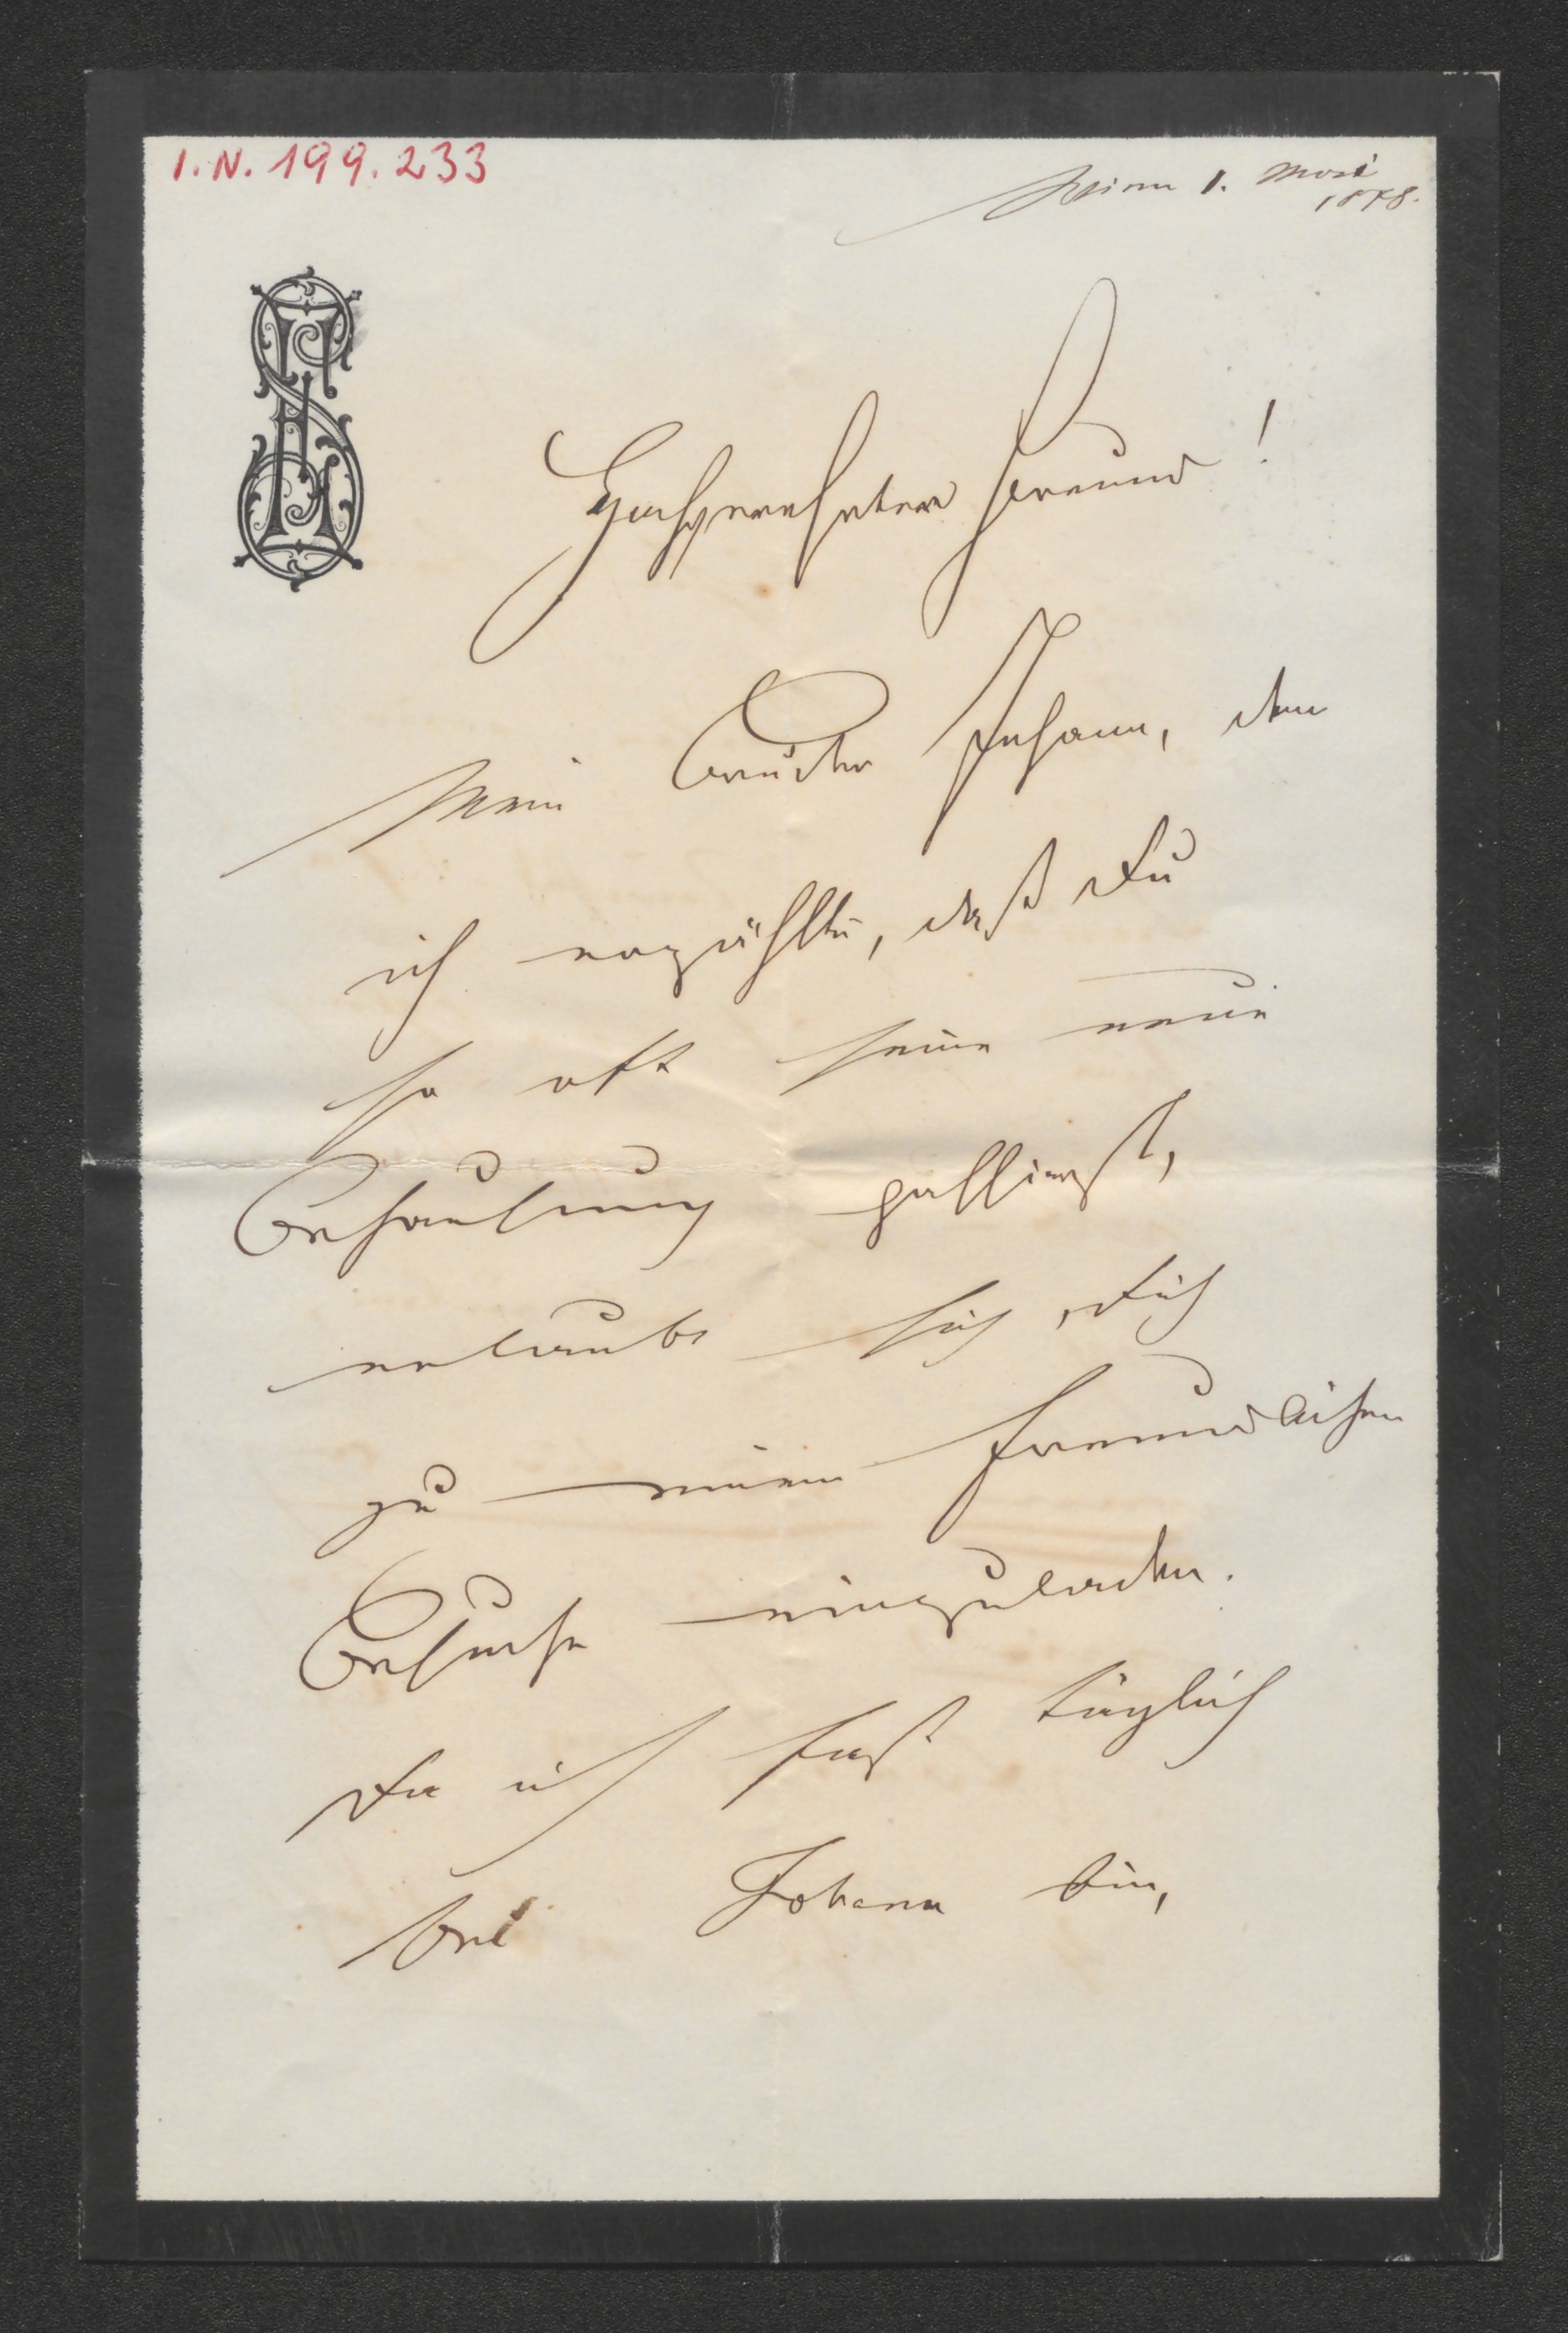 I.N. 199.233
Wien 1. Mai
1878.
Hochverehrter Freund!
Mein Bruder Johann, dem
ich erzählte, daß Du
so oft seine neue
Behausung passierst,
erlaubt sich, Dich
zu einem freundlichen
Besuche einzuladen.
Da ich fast täglich
bei Johann bin,